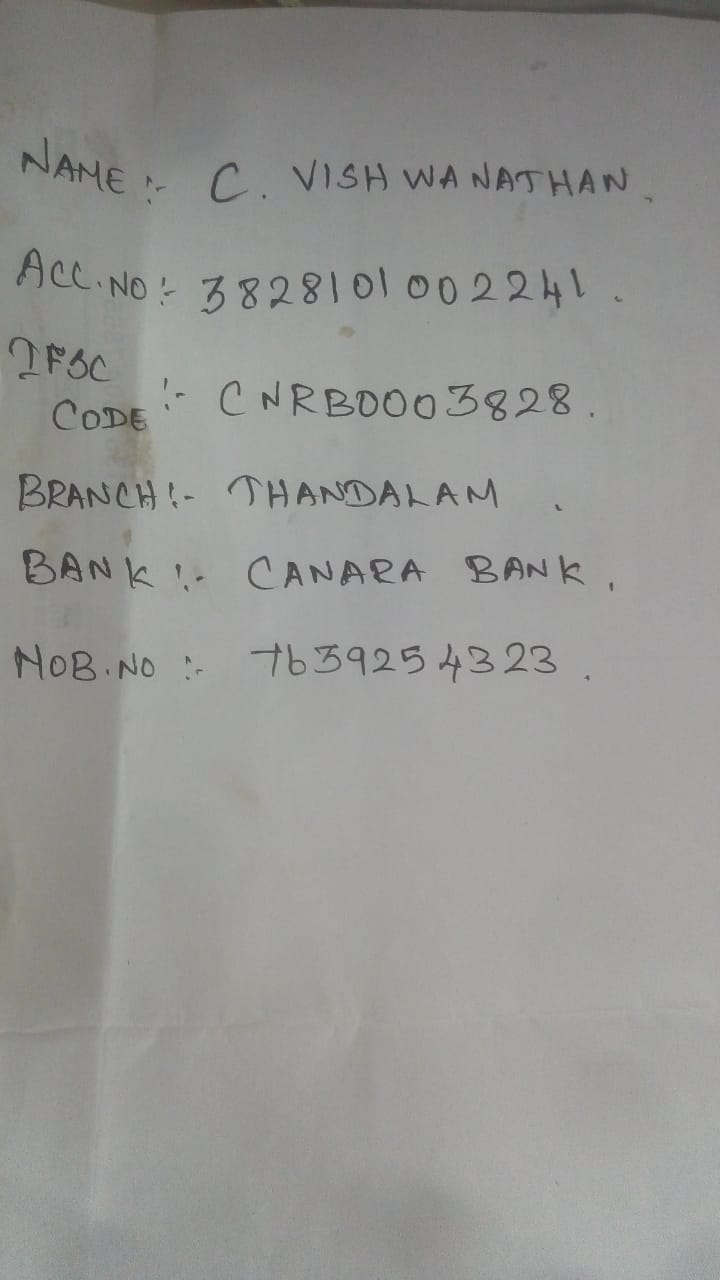 NAME :- C. VISHWANATHAN.
ACC.NO :- 3828101002241.
IFSC
CODE :- CNRB0003828.
BRANCH :- THANDALAM.
BANK :- CANARA BANK,
MOB.NO :- 7639254323.